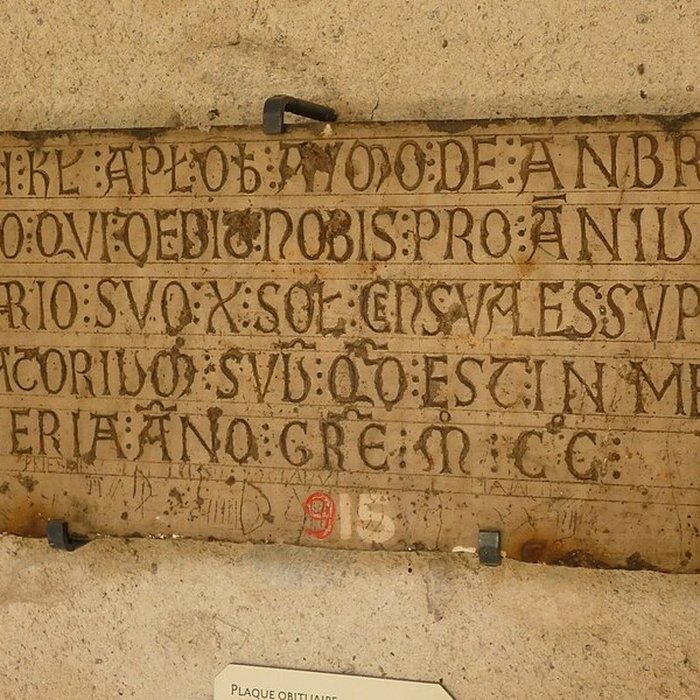 I:KŁ:APŁ:OB:AYMO:DE:ANBR
O:QVI:DEDIT:NOBIS:PRO:ĀNIU
ARIO:SVO:X:SOŁ:CENSVALES:SVP
ATORIUM:SVŪ:QD̄:EST:IN MO
ERIA:ĀNO:GRĒ:M̊:C̊C̊:
915
PLAQUE OBITUAIRE